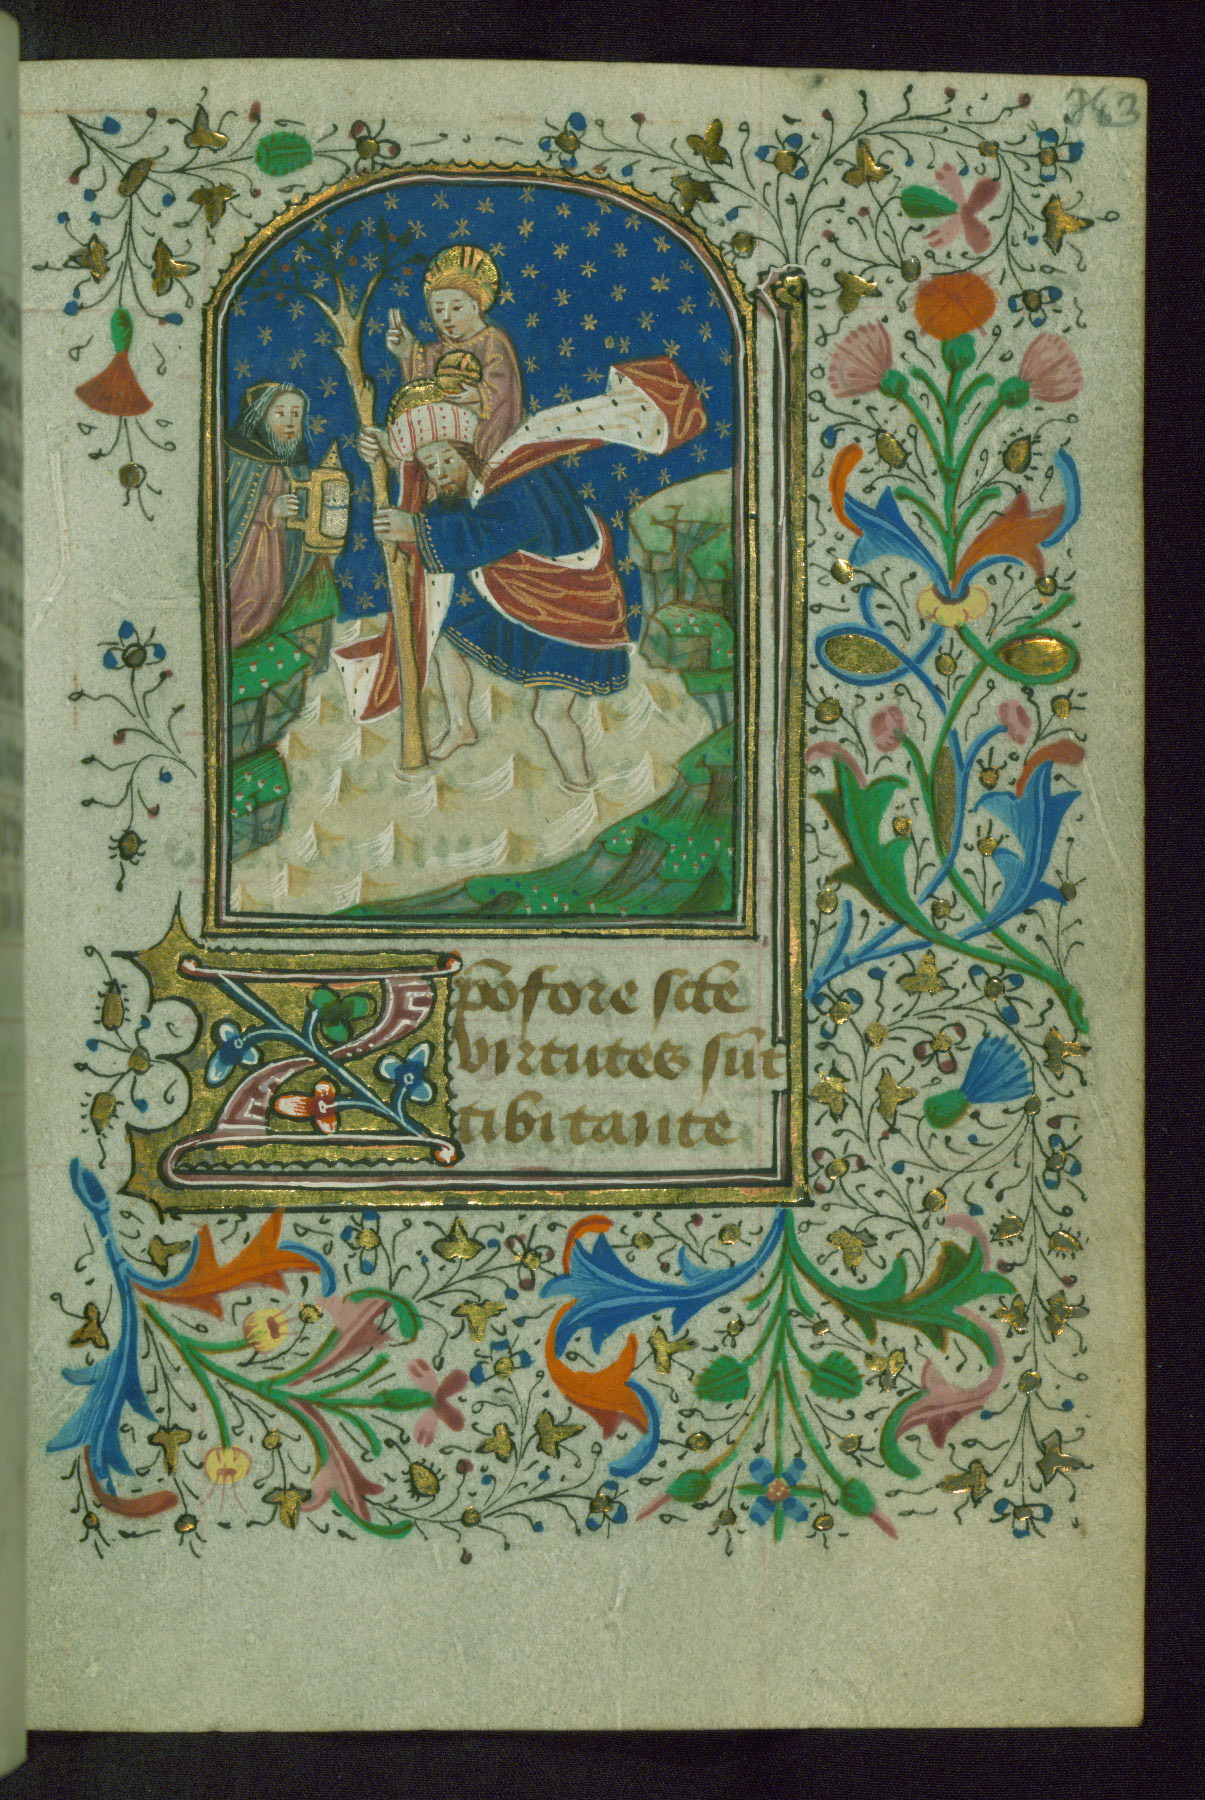 Xp̄ofore sc̄te
virtutes sūt
tibi tante